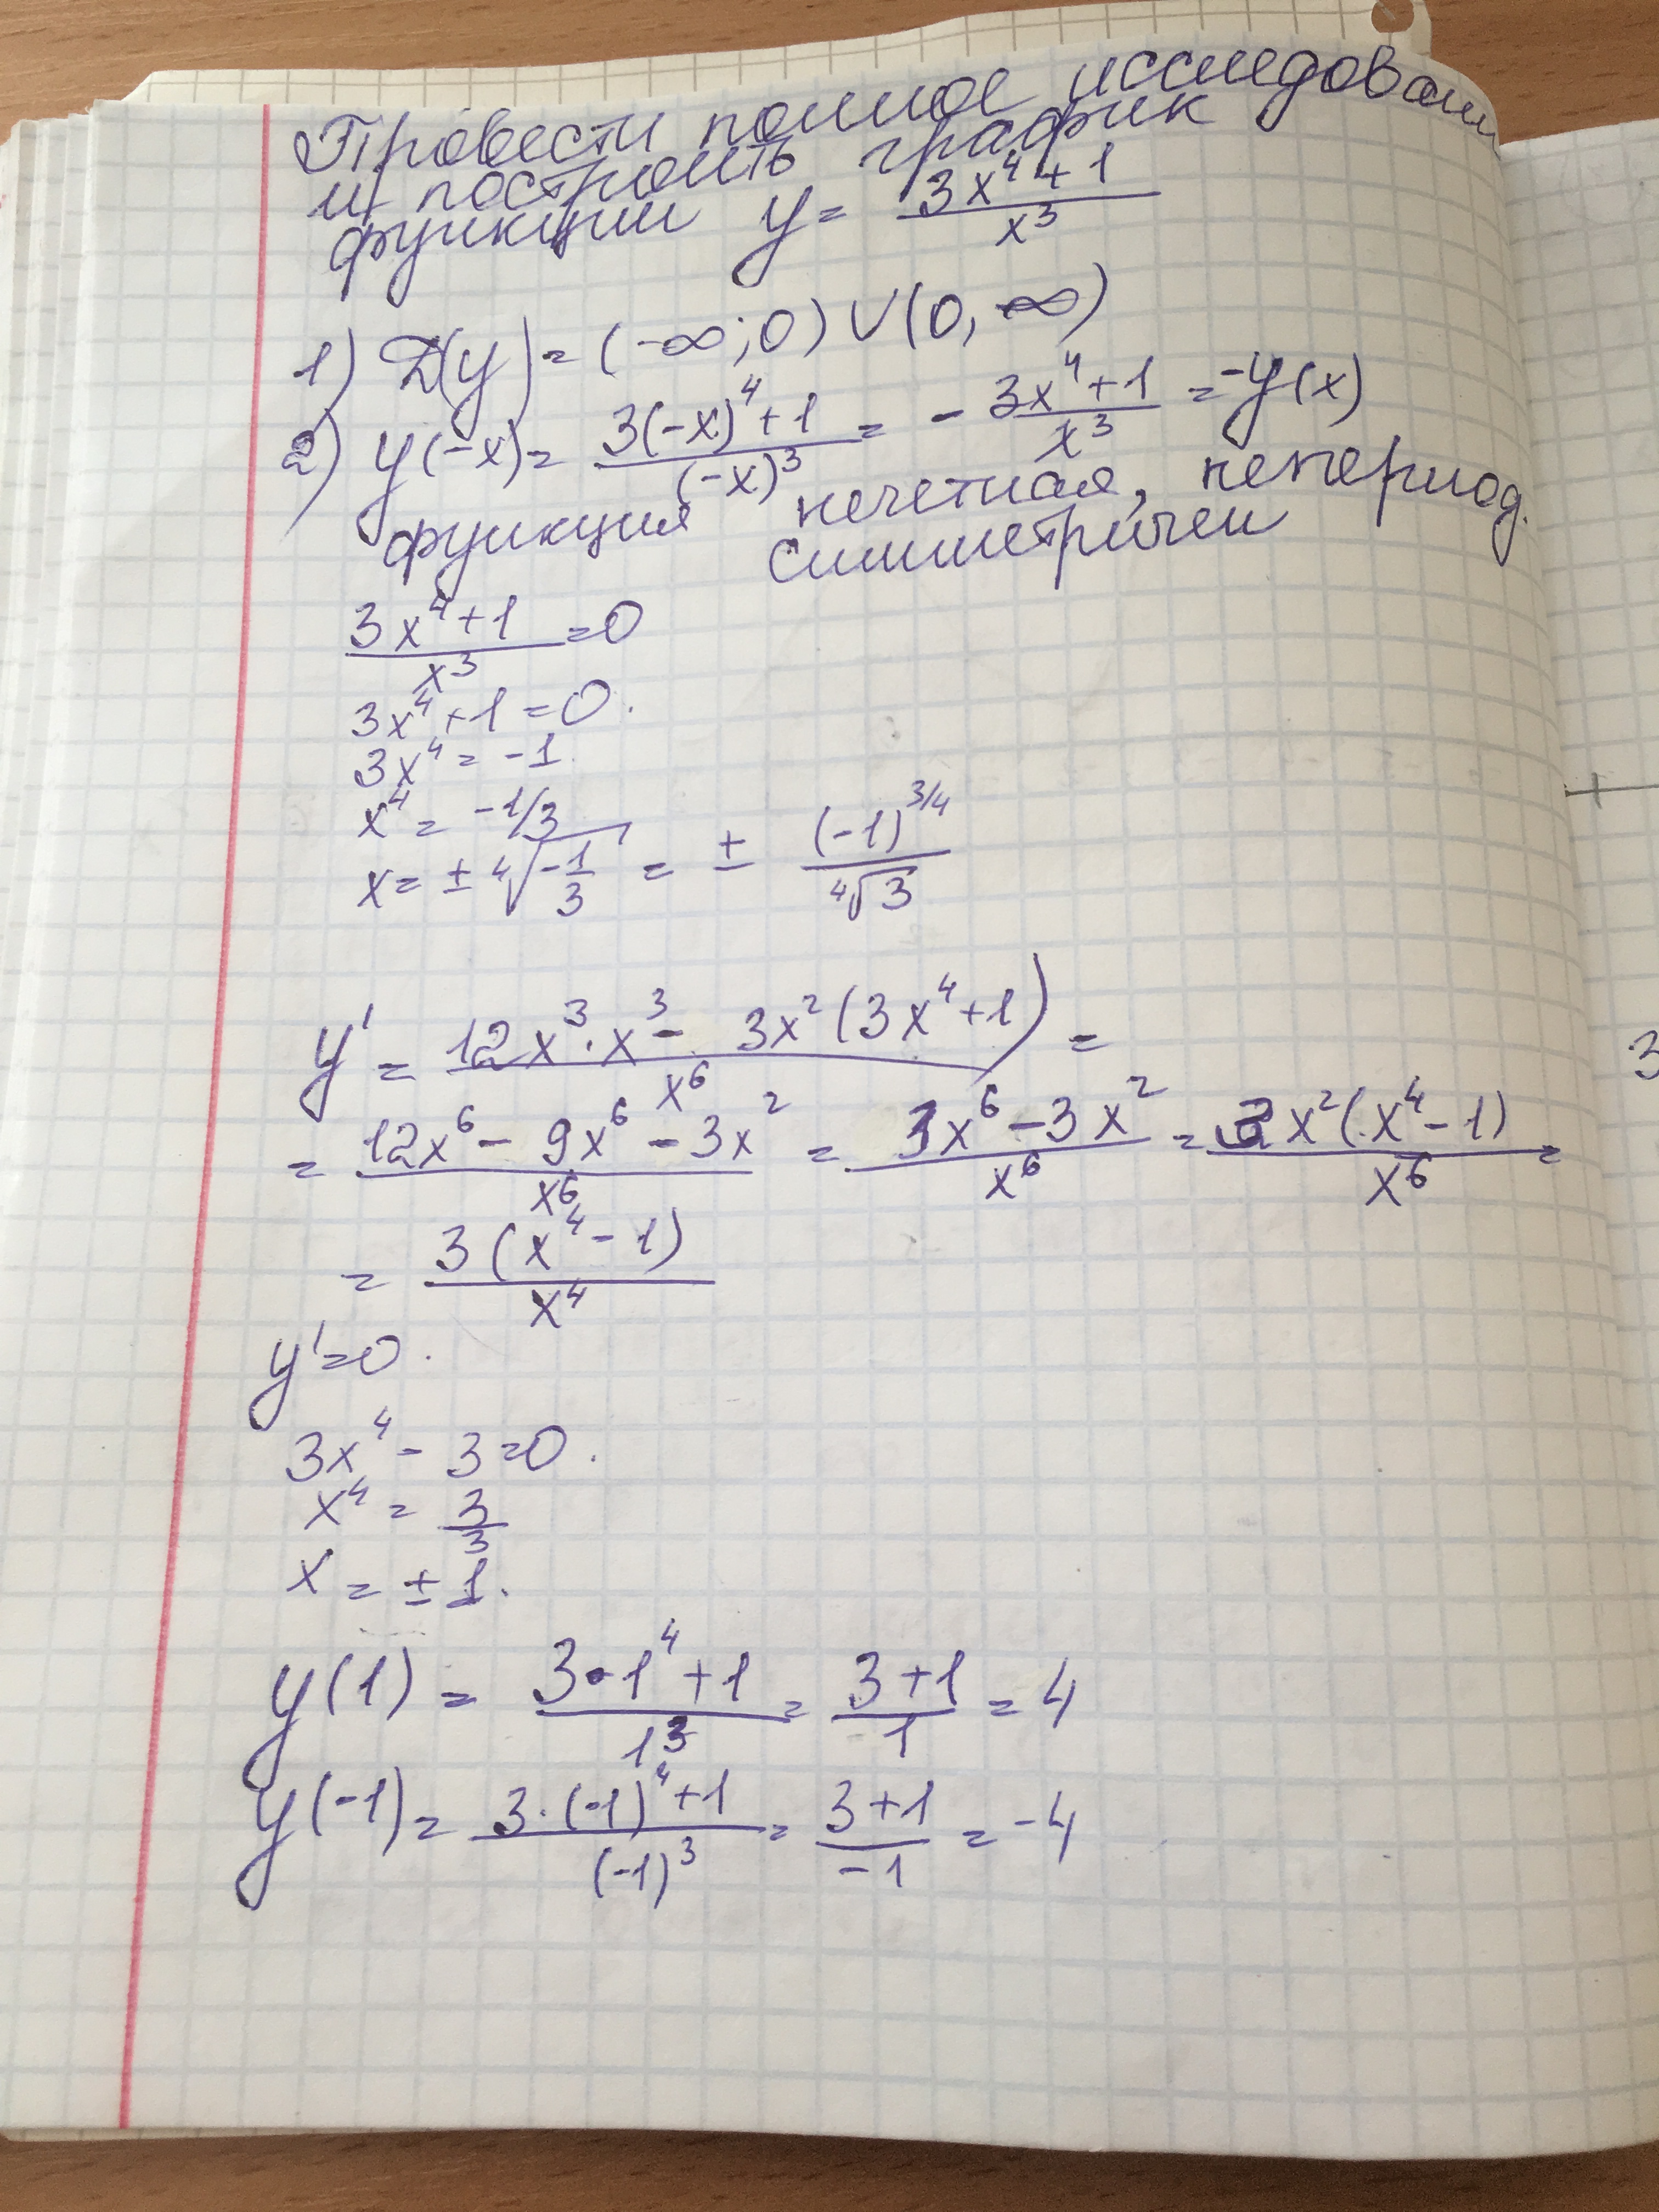 Провести полное исследован
и построить график
функции y = (3x⁴+1)/x³
1) D(y) = (-∞;0) ∪ (0, ∞)
2) y(-x) = (3(-x)⁴+1)/(-x)³ = - (3x⁴+1)/x³ = -y(x)
функция нечетная, непериод.
симметричен
(3x⁴+1)/x³ = 0
3x⁴+1=0.
3x⁴ = -1
x⁴ = -1/3
x = ± ⁴√(-1/3) = ± (-1)^(3/4)/⁴√3
y' = (12x³·x³ - 3x²(3x⁴+1))/x⁶ =
= (12x⁶ - 9x⁶ - 3x²)/x⁶ = (3x⁶-3x²)/x⁶ = (3x²(x⁴-1))/x⁶ =
= (3(x⁴-1))/x⁴
y'=0.
3x⁴ - 3=0.
x⁴ = 3/3
x = ± 1.
y(1) = (3·1⁴+1)/1³ = (3+1)/1 = 4
y(-1) = (3·(-1)⁴+1)/(-1)³ = (3+1)/-1 = -4
3